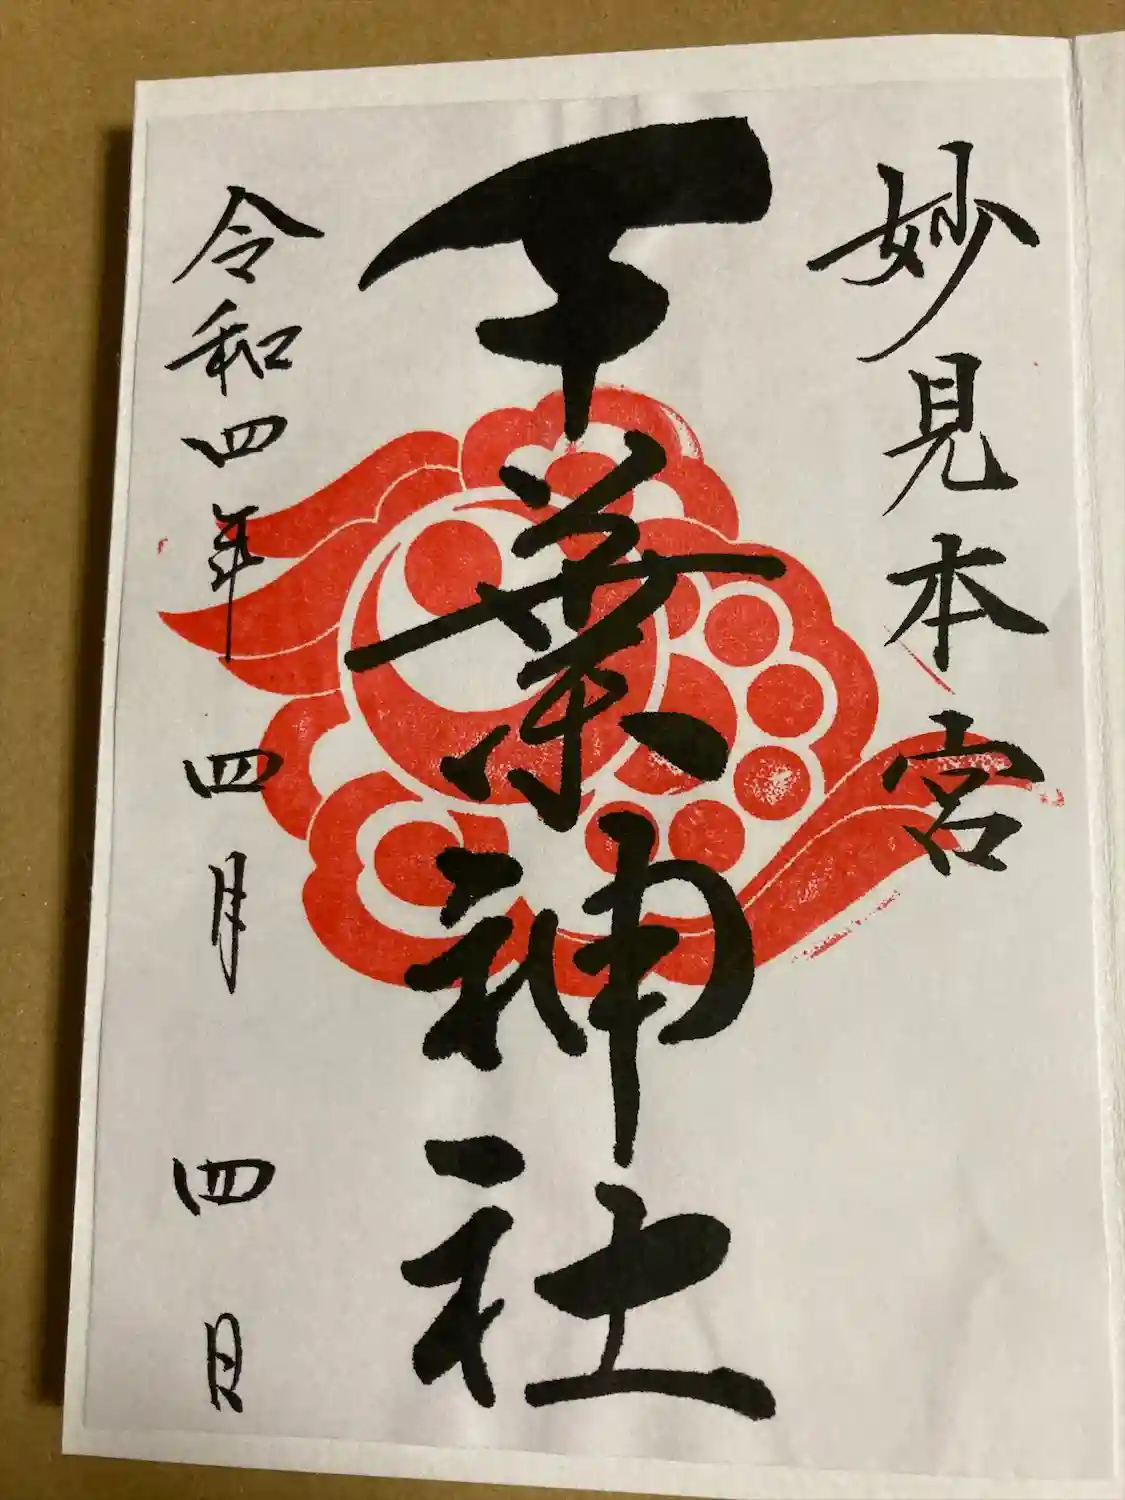 妙見本宮
千葉神社
令和四年四月四日